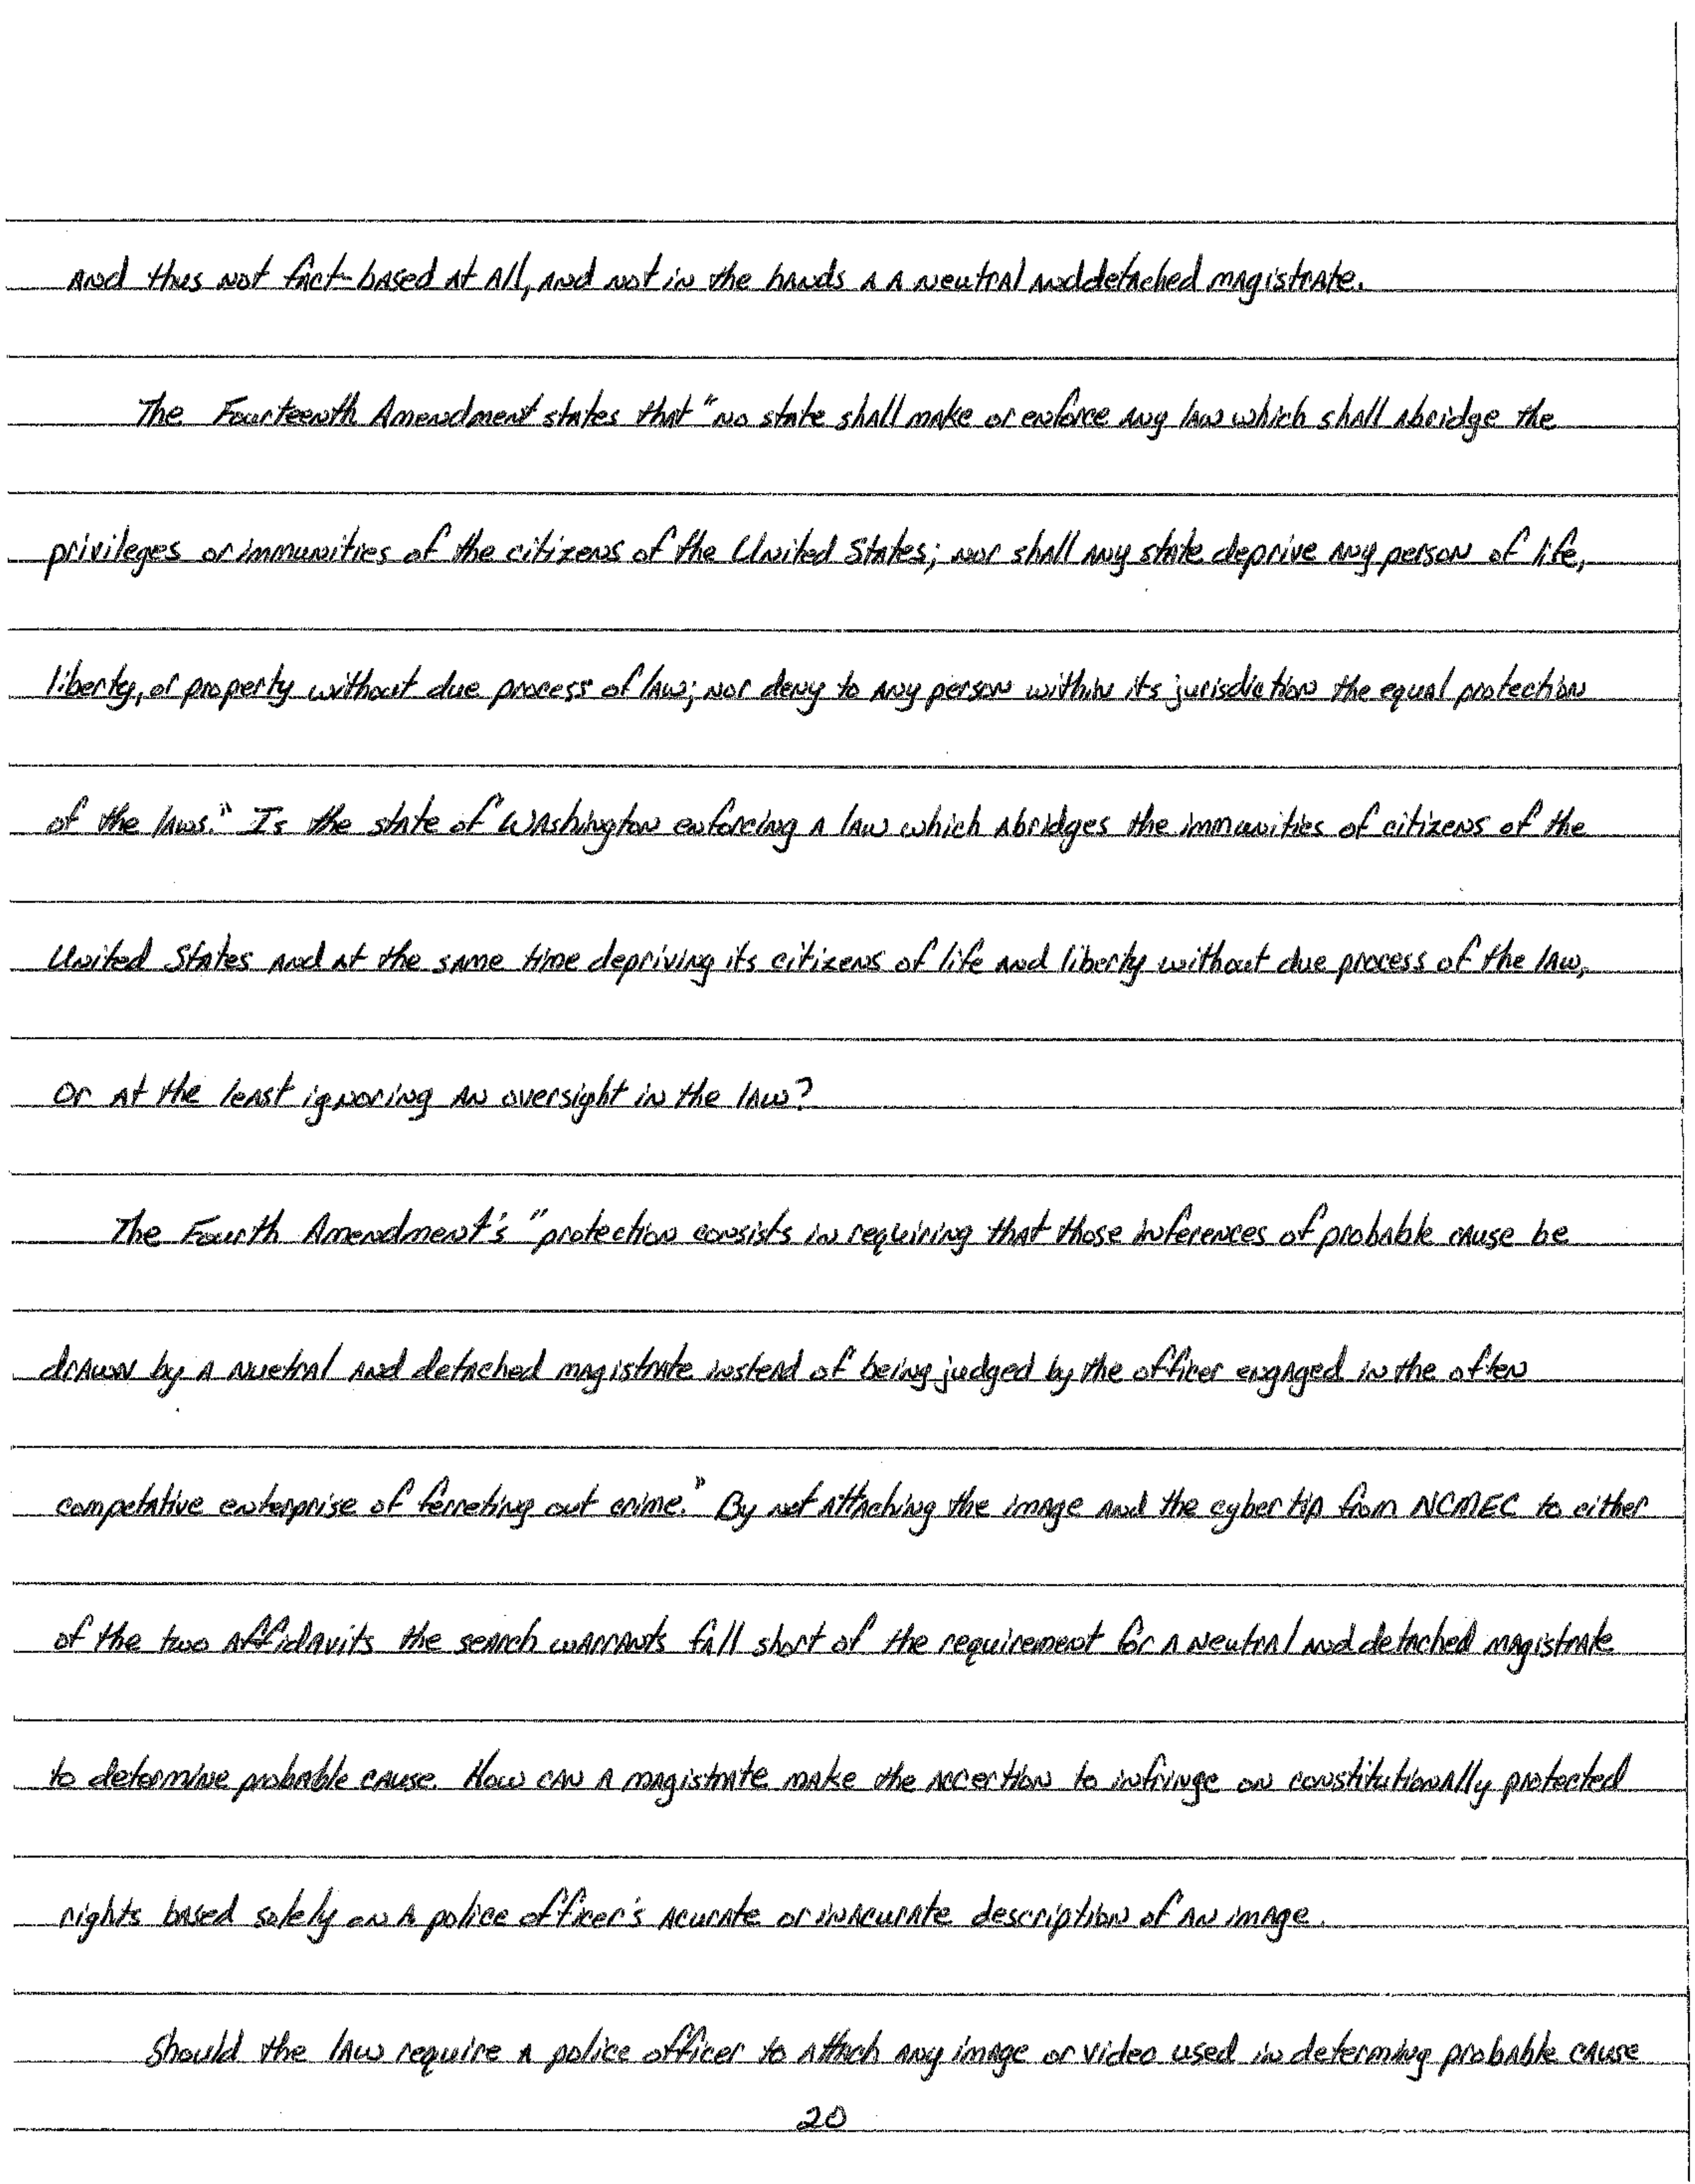 and thus not fact-based at all, and not in the hands a a neutral and detached magistrate.
The Fourteenth Amendment states that "no state shall make or enforce any law which shall abridge the
privileges or immunities of the citizens of the United States; nor shall any state deprive any person of life,
liberty, or property without due process of law; nor deny to any person within its jurisdiction the equal protection
of the laws." Is the state of Washington enforcing a law which abridges the immunities of citizens of the
United States and at the same time depriving its citizens of life and liberty without due process of the law,
or at the least ignoring an oversight in the law?
The Fourth Amendment's "protection consists in requiring that those inferences of probable cause be
drawn by a nuetral and detached magistrate instead of being judged by the officer engaged in the often
competative enterprise of ferreting out crime." By not attaching the image and the cybertip from NCMEC to either
of the two affidavits the search warrants fall short of the requirement for a neutral and detached magistrate
to determine probable cause. How can a magistrate make the accertion to infringe on constitutionally protected
rights based solely on a police officer's acurate or inacurate description of an image.
Should the law require a police officer to attach any image or video used in determing probable cause
20